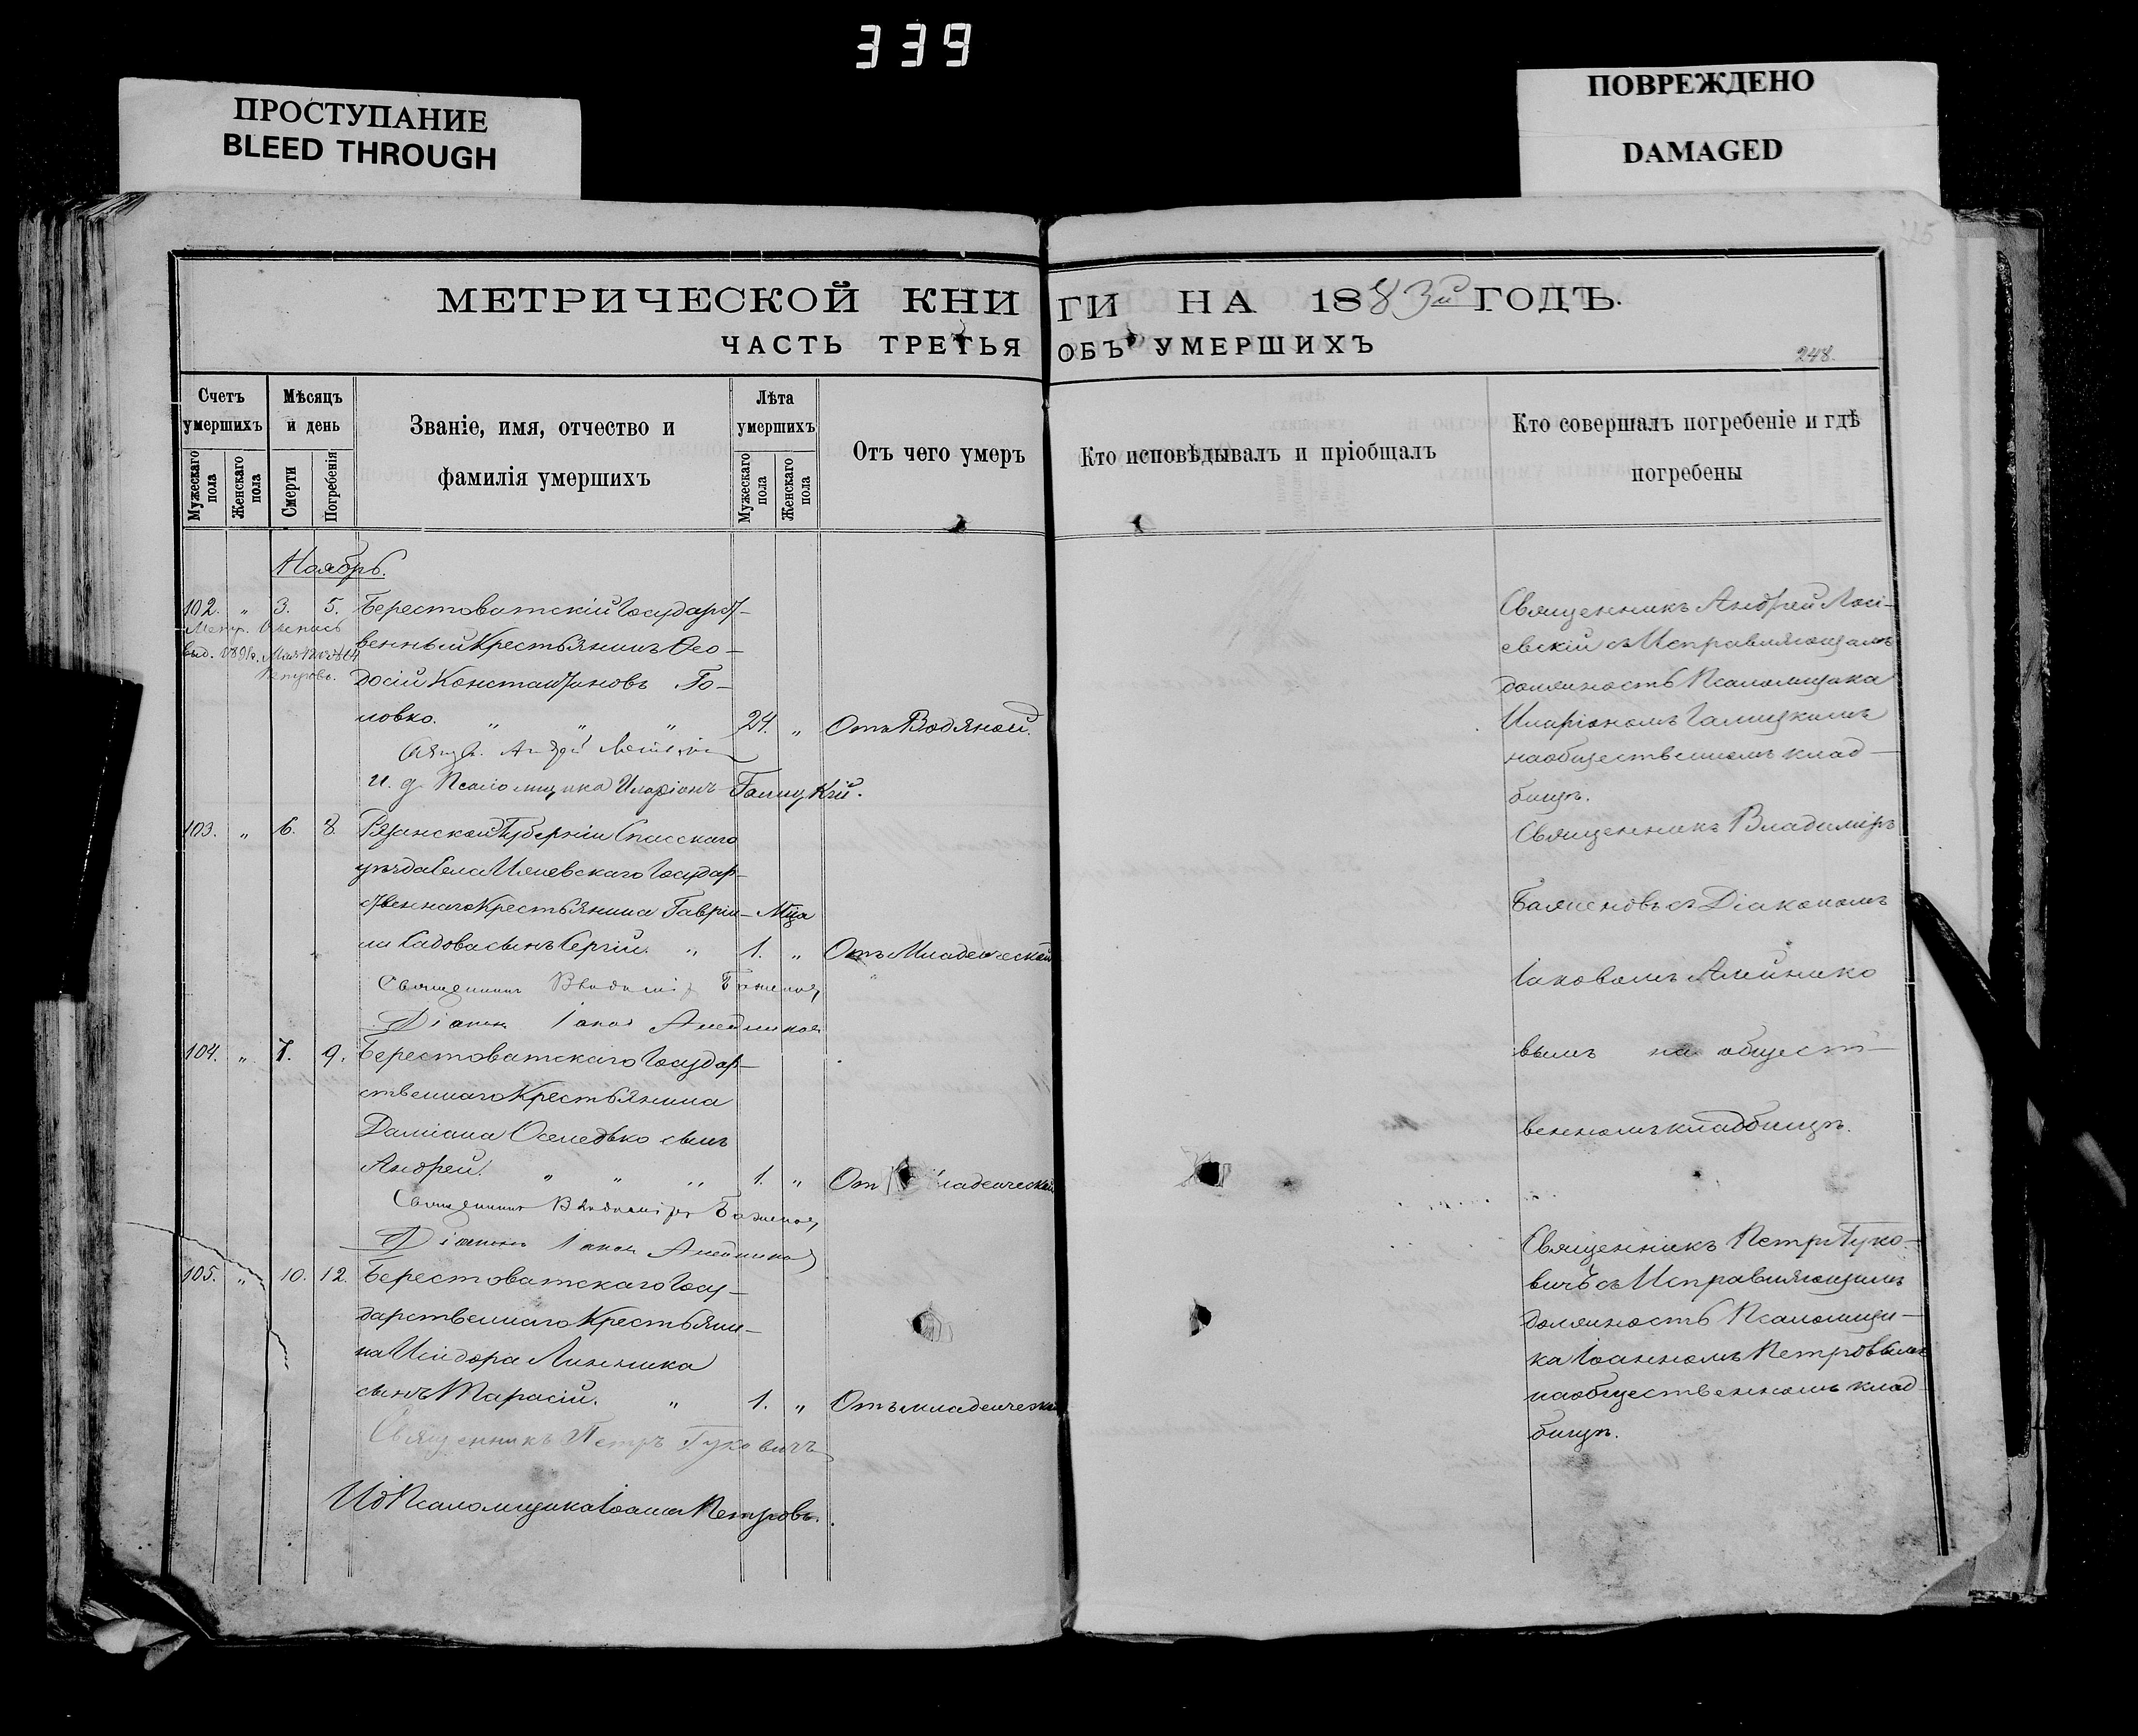 339
ПРОСТУПАНИЕ
BLEED THROUGH
ПОВРЕЖДЕНО
DAMAGED
МЕТРИЧЕСКОЙ КНИГИ НА 1883й ГОДЪ.
ЧАСТЬ ТРЕТЬЯ ОБЪ УМЕРШИХЪ
248.
Счетъ умершихъ
Мужескаго пола
Женскаго пола
Мѣсяцъ и день
Смерти
Погребенія
Званіе, имя, отчество и
фамилія умершихъ
Лѣта умершихъ
Мужескаго пола
Женскаго пола
Отъ чего умеръ
Кто исповѣдывалъ и пріобщалъ
Кто совершалъ погребеніе и гдѣ
погребены
Ноябрь.
102. " 3. 5. Берестоватскій Государст-
венный Крестьянинъ Ѳео-
досій Константиновъ Го-
ловко. " " " 24. " Отъ Водяной.
Свящ. Андрей
и. д. Псаломщика Иларіонъ Галицкій.
Священникъ Андрей
евскій съ Исправляющимъ
должность Псаломщика
Иларіономъ Галицкимъ
на общественномъ клад-
бищѣ.
103. " 6. 8. Рязанской Губерніи Спасскаго
уѣзда Села Государ-
ственнаго Крестьянина Гаврі- Мца
ила Садова сынъ Сергій. " 1. " Отъ Младенческой
Священникъ Владиміръ Баженовъ
Діаконъ Іаковъ Алейниковъ
Священникъ Владиміръ
Баженовъ съ Діакономъ
Іаковомъ Алейнико
вымъ на общест-
венномъ кладбищѣ.
104. " 7. 9. Берестоватскаго Государ-
ственнаго Крестьянина
Даміана Оселедько сынъ
Андрей. " " " 1. " Отъ Младенческой
Священникъ Владиміръ Баженовъ
Діаконъ Іаковъ Алейниковъ
105. " 10. 12. Берестоватскаго Госу-
дарственнаго Крестьяни-
на Исидора Линника
сынъ Тарасій. " 1. " Отъ младенческой
Священникъ Петръ Гуковичъ
ИдПсаломщика Іоаннъ Петровъ.
Священникъ Петръ Гуко-
вичъ съ Исправляющимъ
должность Псаломщи-
ка Іоанномъ Петровымъ
на общественномъ клад-
бищѣ.